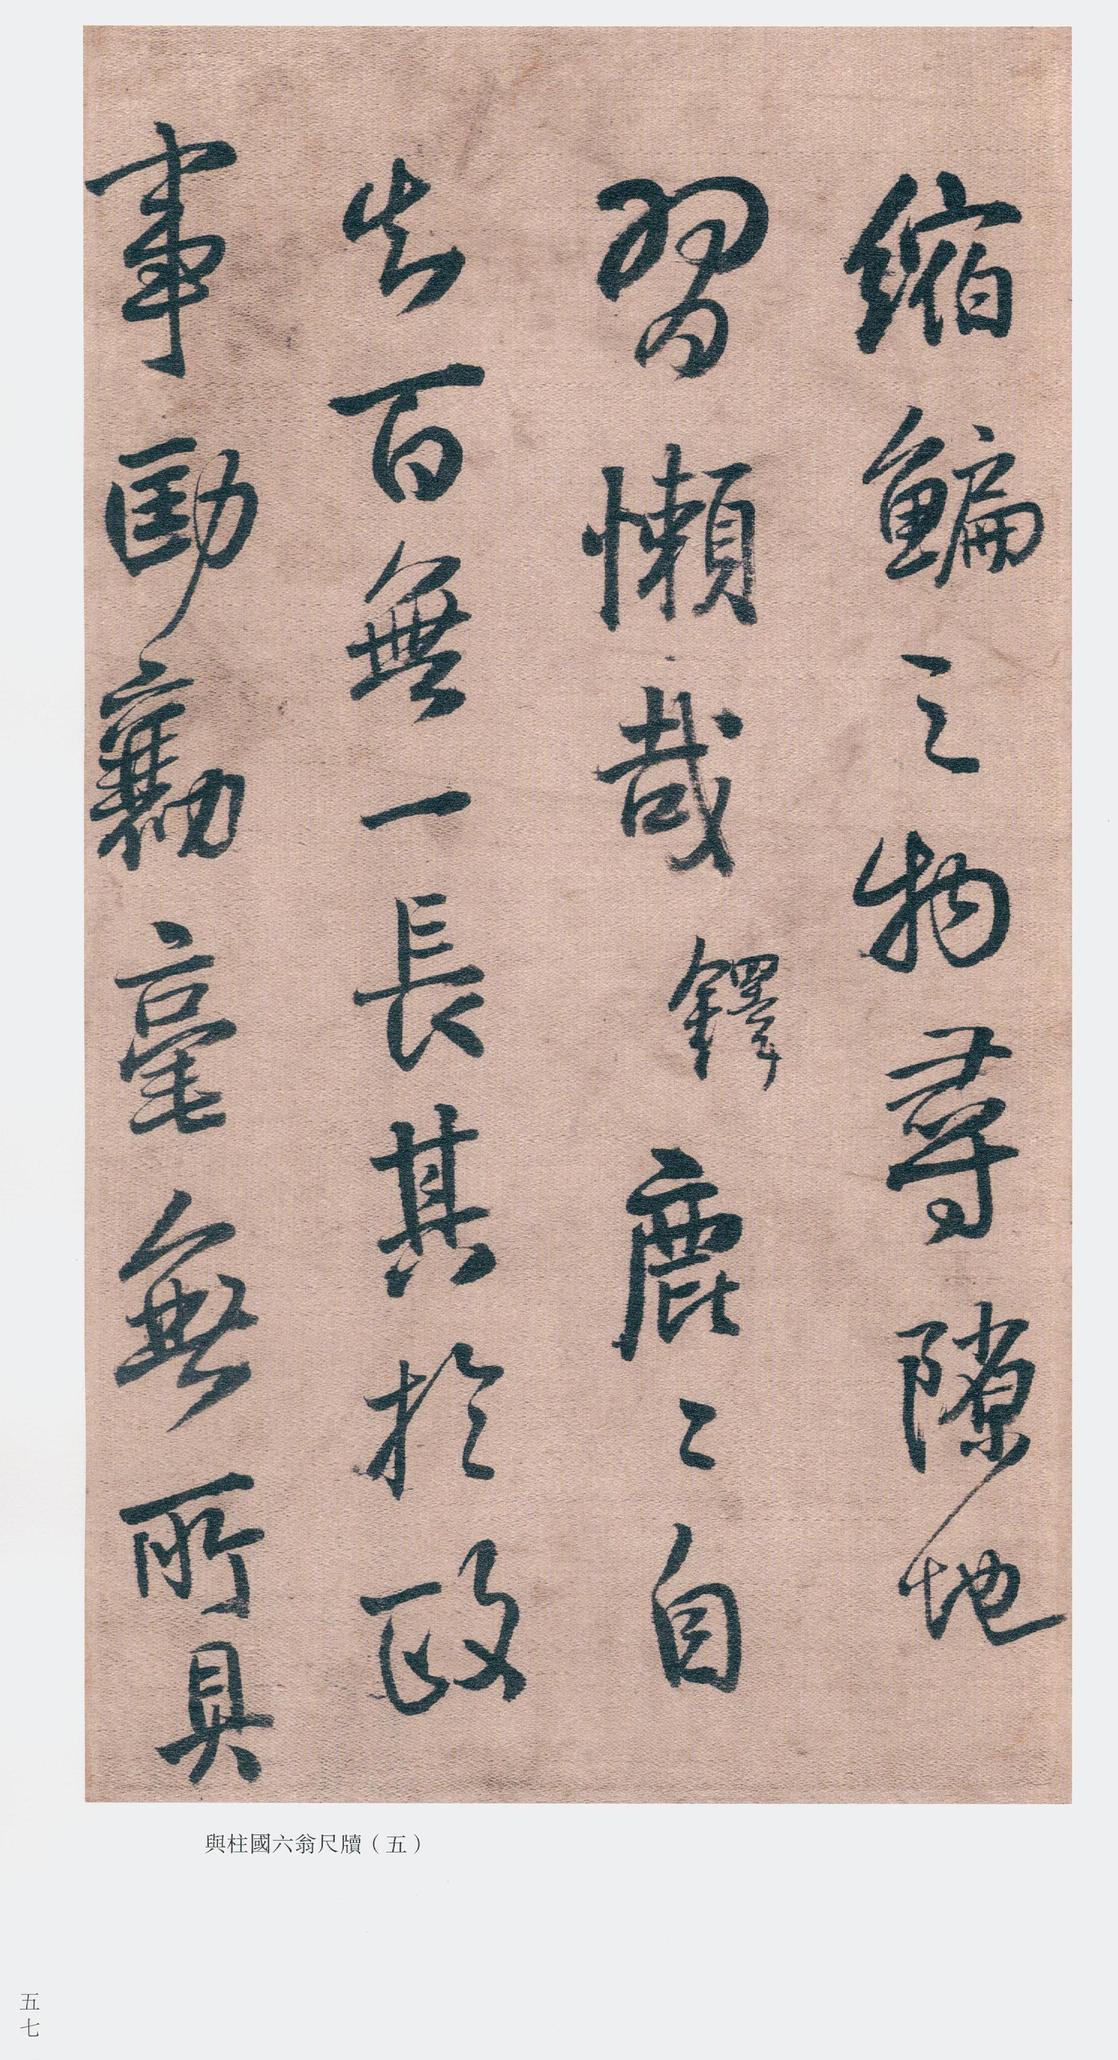 縮鯿之物尋隙地
習懶哉鐸鹿〻自
知百無一長其於政
事劻勷毫無所具
與柱國六翁尺牘（五）
五七